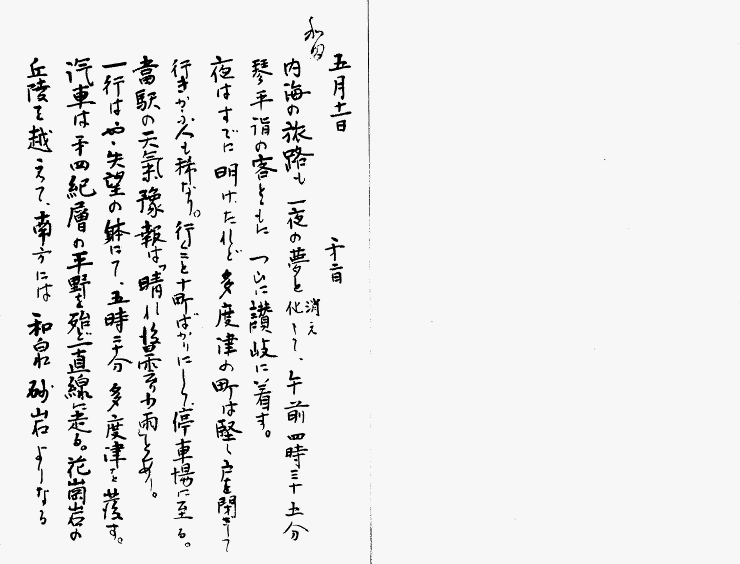 五月十一日 第二日
内海の旅路も一夜の夢と消え化して、午前四時三十五分
琴平詣の客とともに つひに讃岐に着す。
夜はすでに明けたれど 多度津の町は堅く戸を閉ざして
行きかふ人も稀なり。行くこと十町ばかりにして、停車場に至る。
當駅の天氣豫報は「晴れ後雲り小雨」とあり。
一行はや、失望の躰にて、五時三十分 多度津を發す。
汽車は第四紀層の平野を殆ど一直線に走る。花崗岩の
丘陵を越えて、南方には 和泉砂岩よりなる